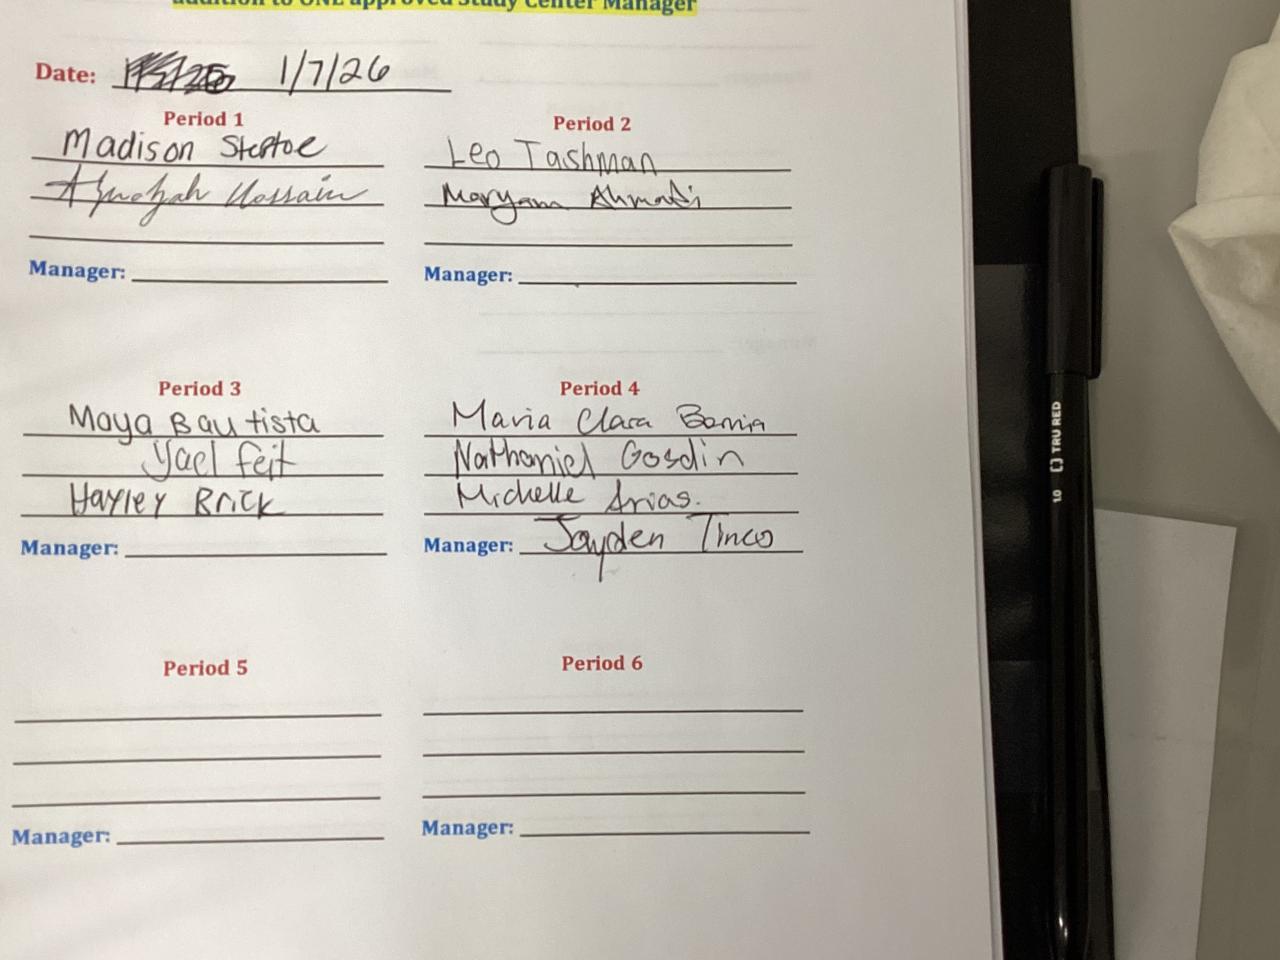 addition to ONE approved Study Center Manager
Date: 1/7/26
Period 1
Madison Steptoe
Hossain
Manager:
Period 2
Leo Tashman
Maryam Ahmadi
Manager:
Period 3
Maya Bautista
Yael Feit
Hayley Brick
Manager:
Period 4
Maria Clara
Nathaniel Gosdin
Michelle Arias.
Manager: Jayden Tinco
Period 5
Manager:
Period 6
Manager:
TRU RED
1.0